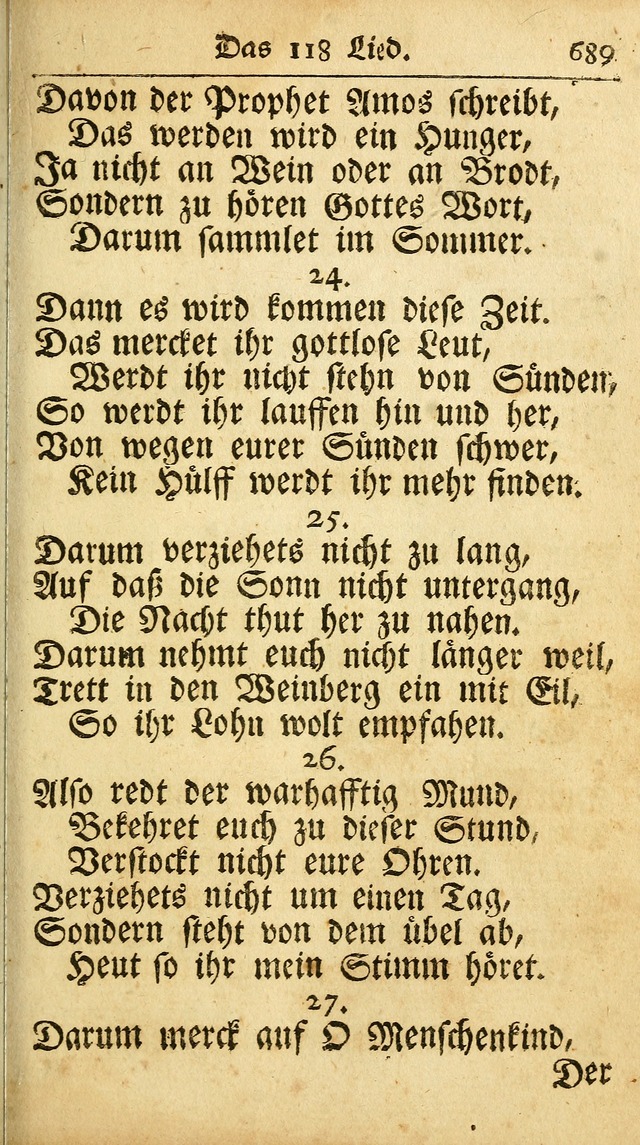 Das 118 Lied. 689
Davon der Prophet Amos schreibt,
Das werden wird ein Hunger,
Ja nicht an Wein oder an Brodt,
Sondern zu hören Gottes Wort,
Darum sammlet im Sommer.
24.
Dann es wird kommen diese Zeit.
Das mercket ihr gottlose Leut,
Werdt ihr nicht stehn von Sünden,
So werdt ihr lauffen hin und her,
Von wegen eurer Sünden schwer,
Kein Hülff werdt ihr mehr finden.
25.
Darum verziehets nicht zu lang,
Auf daß die Sonn nicht untergang,
Die Nacht thut her zu nahen.
Darum nehmt euch nicht länger weil,
Trett in den Weinberg ein mit Eil,
So ihr Lohn wolt empfahen.
26.
Also redt der warhafftig Mund,
Bekehret euch zu dieser Stund,
Verstockt nicht eure Ohren.
Verziehets nicht um einen Tag,
Sondern steht von dem übel ab,
Heut so ihr mein Stimm höret.
27.
Darum merck auf O Menschenkind,
Der